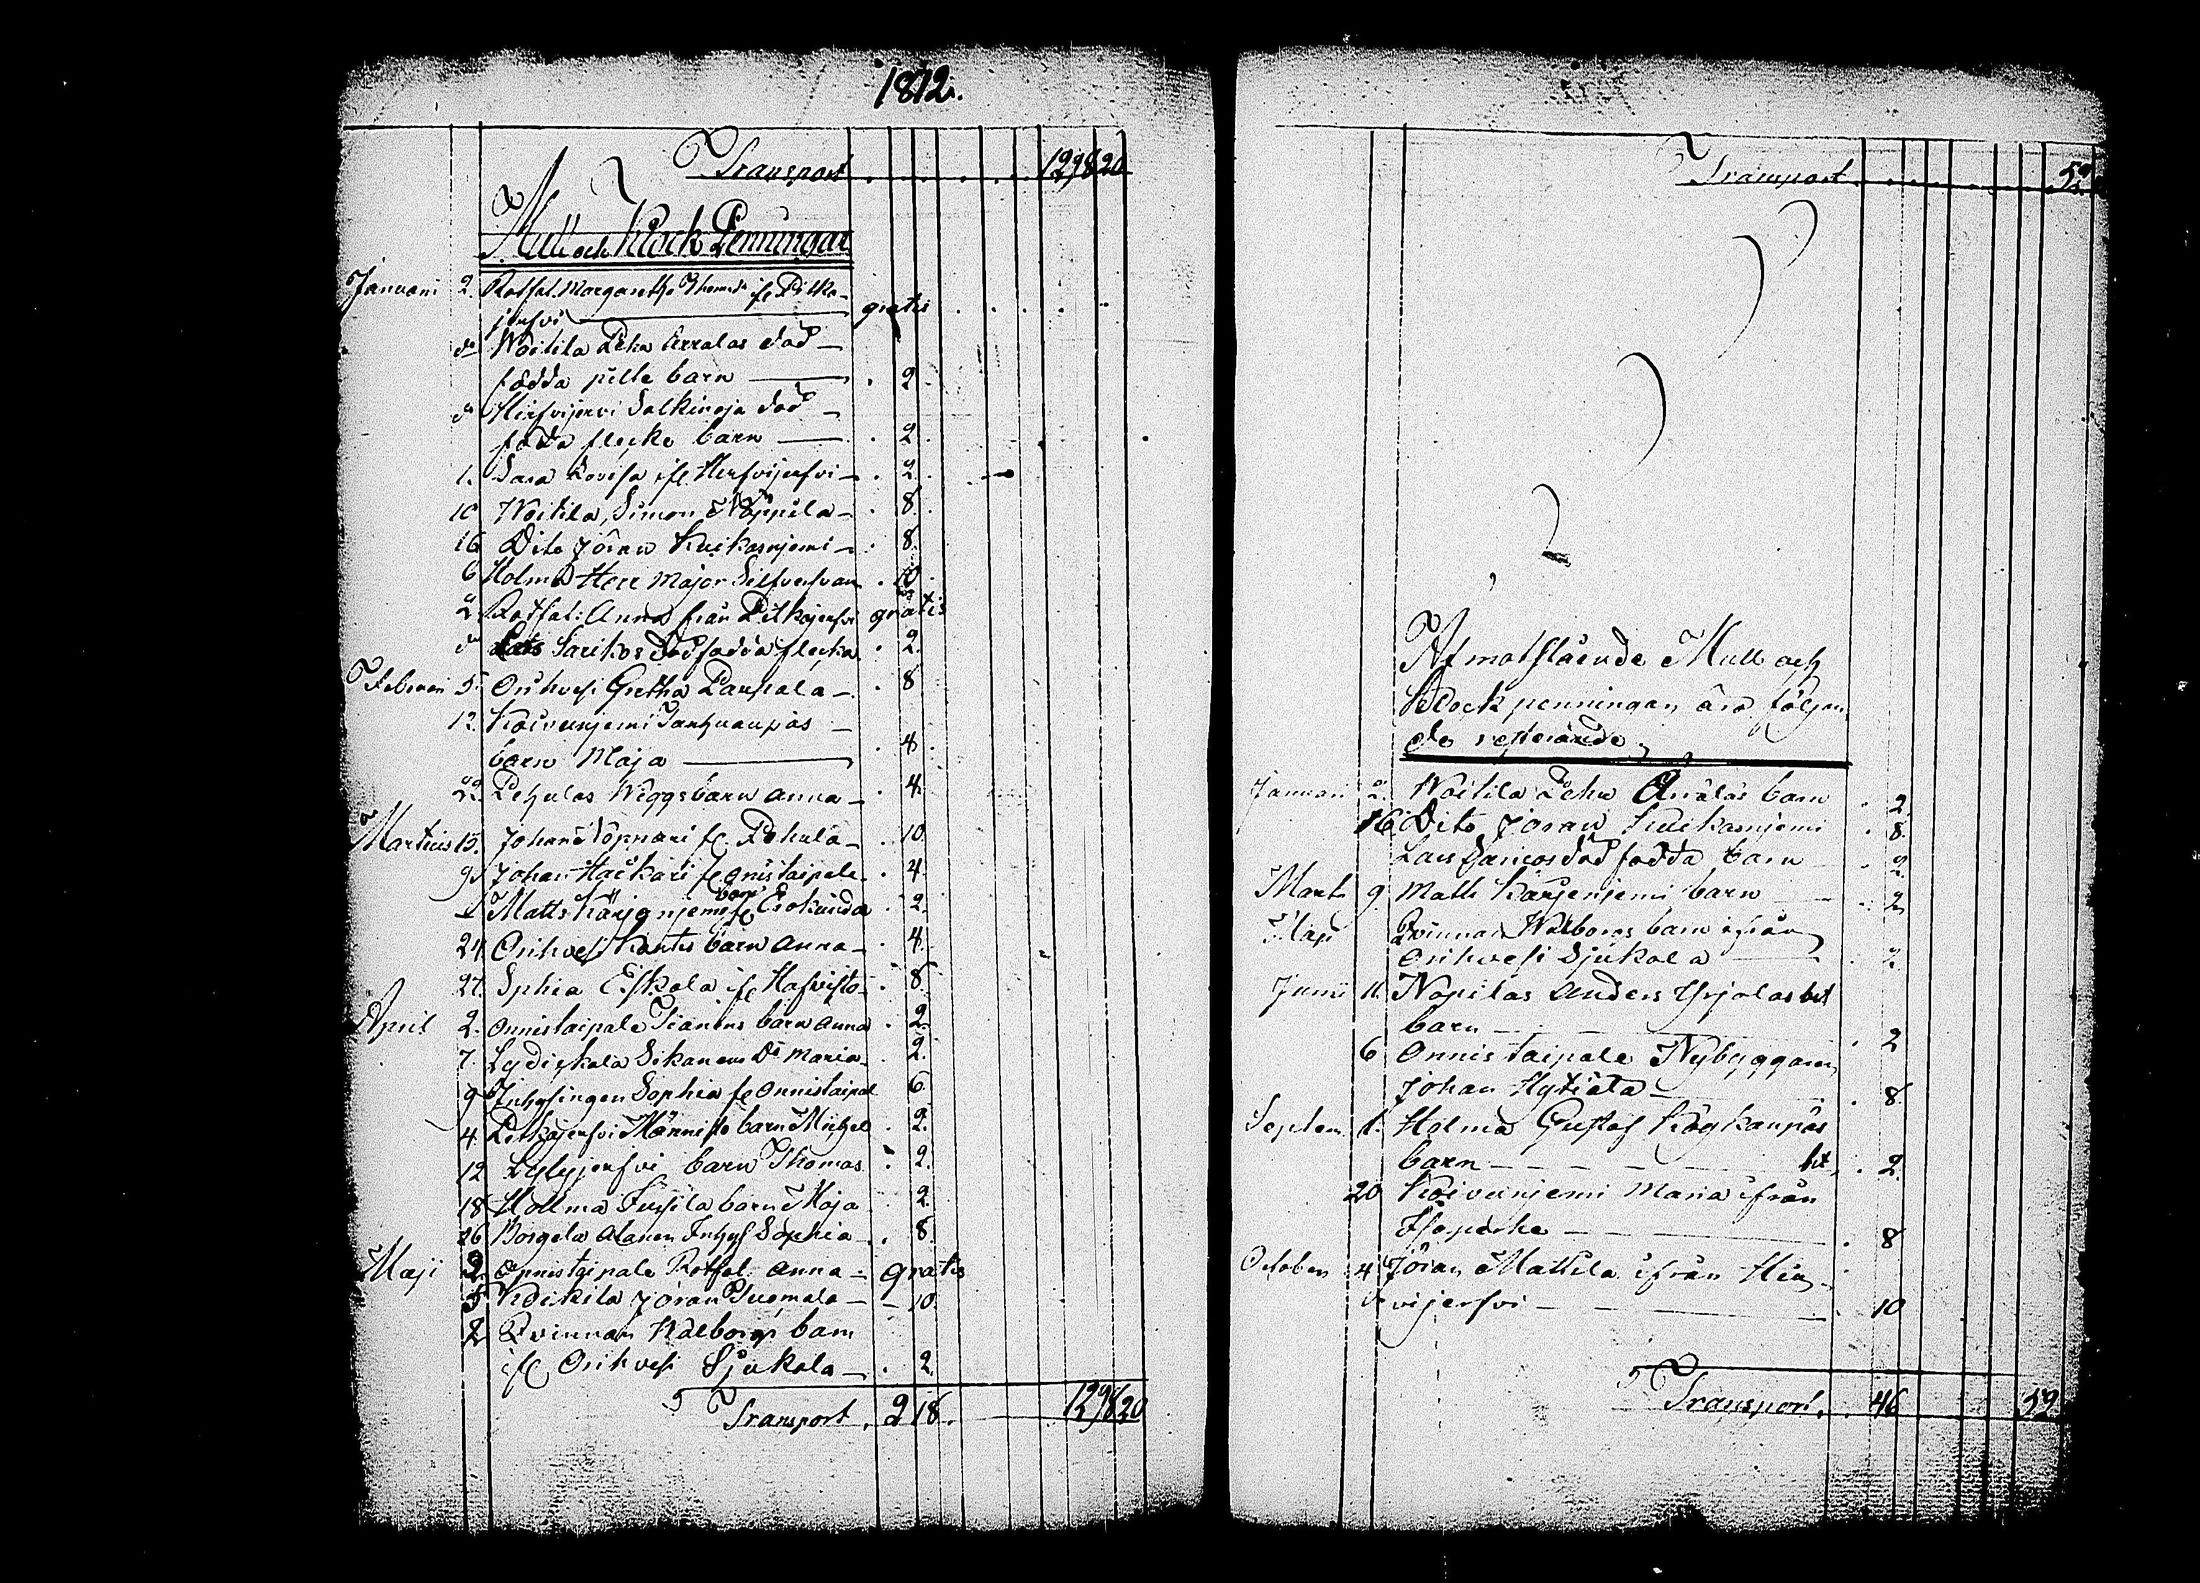 1812.
Transport 129 8 20
Mull och Klock Penningar
Januari 2. Rotfat. Margaretha Thomsdr ifr Pitkä-
jerfvi gratis
do Woitila Pehu Arralas död
födda pilte barn 2
do Hirfvijervi Salkinoja död
föda flecke barn 2
1. Sara Lovisa ifr Herfvijerfvi 2
10 Woitila, Simon Nöppila 8
16 Dito Jöran Kuikasnjemi 8
6 Holma Herr Major Silfversvan 10
2 Rotfat: Anna från Pitkäjerfvi gratis
do Lars Sarikos Dödfödda flecka 2
Februari 5. Orihvesi Gretha Paupala 8
12. Koivunjemi Tanhuanpäs
barn Maja 4
22. Pehulas Wiggs barn Anna 4
Martius 13. Johan Nöpnäri fr. Pohula 10
9 Johan Hackari fr Onistaipale 4
d Matts Kärjenjemi barn fr Erokunda 2
24 Orihvesi Kantis barn Anna 4
27. Sphia Eskola ifr Hafvisto 8
April 2. Onnistaipale Tianens barn Anna 2
7. Lydichala Sikanens Do Maria 2
9 Inhysingen Sophia fr Onnistaipal 6
4. Petkäjerfvi Männistö barn Michel 2
12 Lylyjerfvi barn Thomas 2
18 Hollma Jussila barn Maja 2
26 Borgela Alanen Inhys Sophia 8
Maji 2. Onnistaipale Rotfat: Anna gratis
5 Kockila Jöran Tuomala 10
2 Qvinnan Walborgs barn
ifr Orihvesi Sjukola 2
Transport 2 18 129 8 20
Transport 52
Af motstående Mull och
Klock penningar äro följan
de resterande
Januari 2. Woitila Pehu Arralas barn 2
16 Dito Jöran Kuikasnjemi 8
Lars Sarikos död födda barn 2
Marti 9 Matts Kärjenjemi barn 2
Maji Qvinnan Walborgs barn ifrån
Orihvesi Sjukola 2
Junii 11. Nopilas Anders Yrjolas bet
barn 2
6 Onnistaipale Nybyggaren
Johan Hytiälä 8
Septem 1. Holma Gustaf Kägkänpäs
barn bet 2
20 Koivunjemi Maria ifrån
Isoperhe 8
October 4 Jöran Mattila ifrån Hir-
vijerfvi 10
Transport 46 52